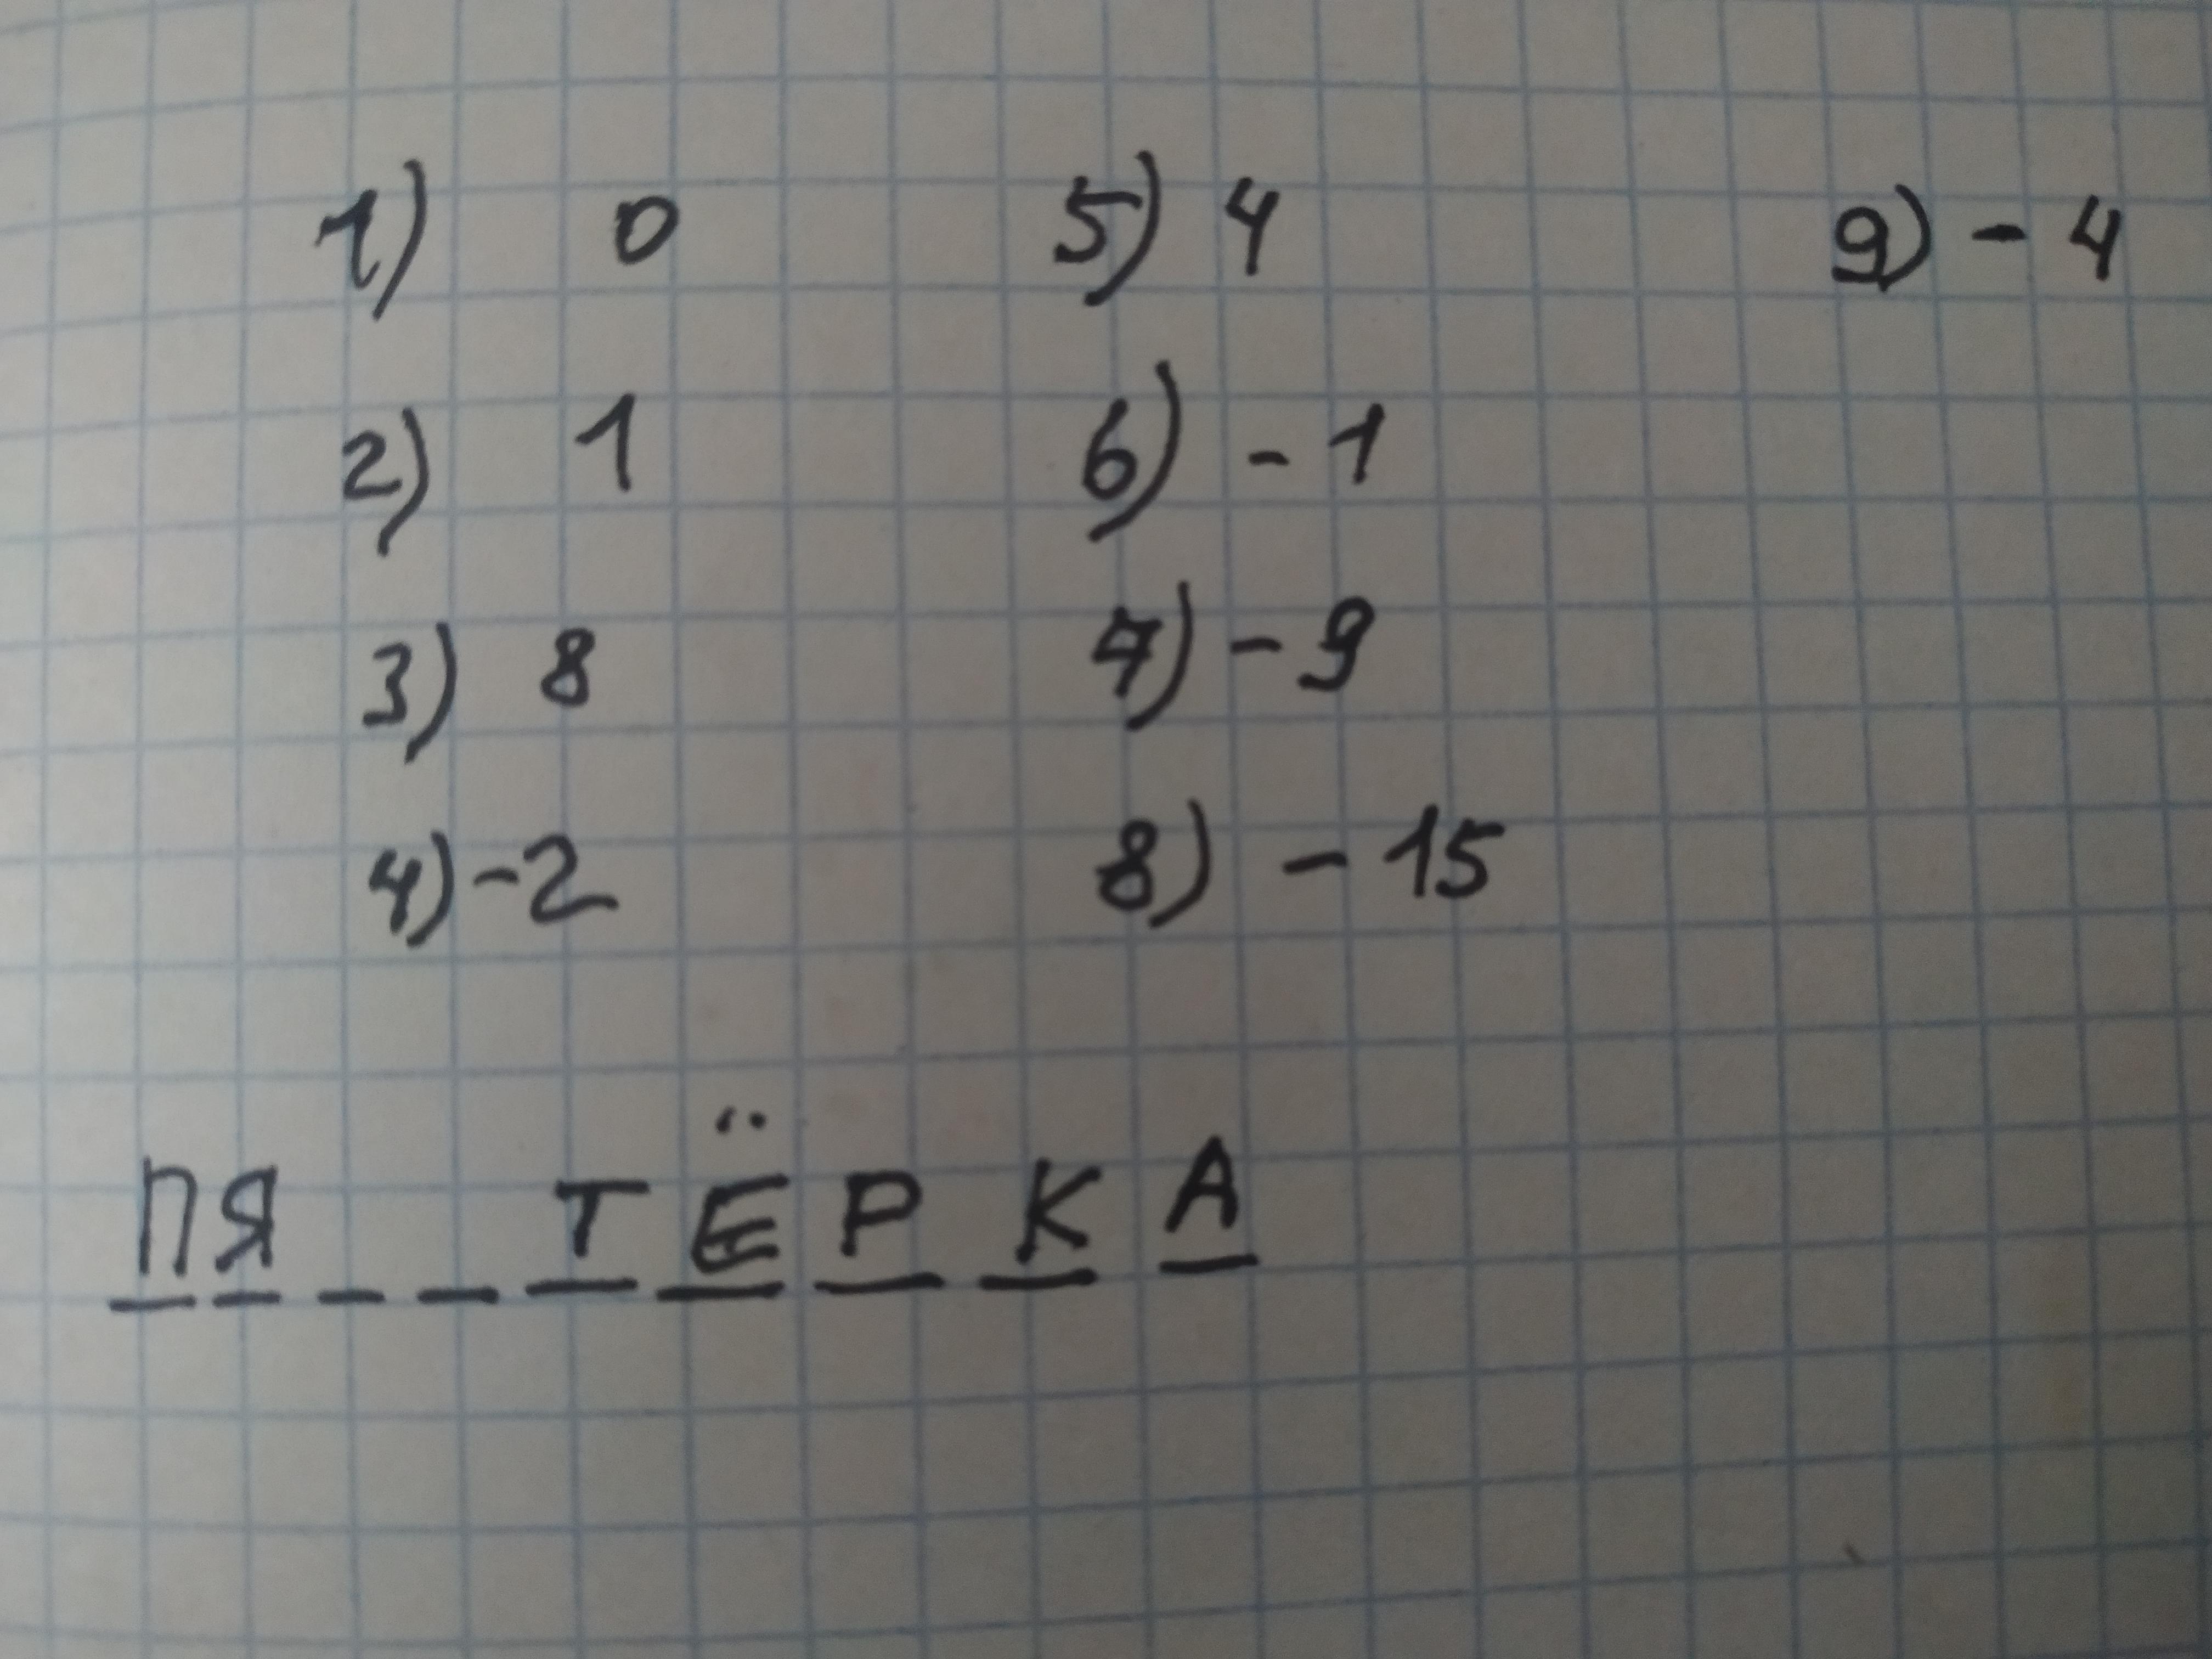 1) 0 5) 4 9) - 4
2) 1 6) - 1
3) 8 7) - 9
4) - 2 8) - 15
ПЯ _ _ ТЁРКА